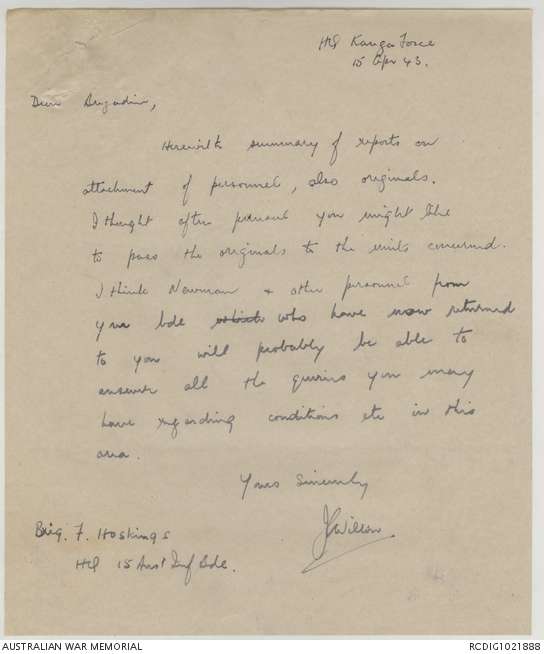 HQ Kanga Force
15 Apr 43.
Dear Brigadier,
Herewith summary of reports on
attachment of personnel, also originals.
I thought after perusal you might like
to pass the originals to the units concerned.
I think Newman & other personnel from
your bde which who have now returned
to you will probably be able to
answer all the queries you may
have regarding conditions etc in this
area.
Yours Sincerely
Brig. F. Hoskings
HQ 15 Aust Inf Bde.
AUSTRALIAN WAR MEMORIAL
RCDIG1021888